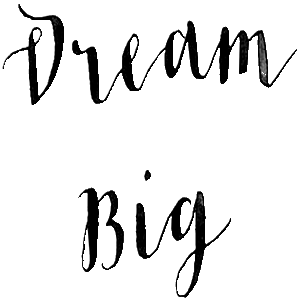 Dream
Big